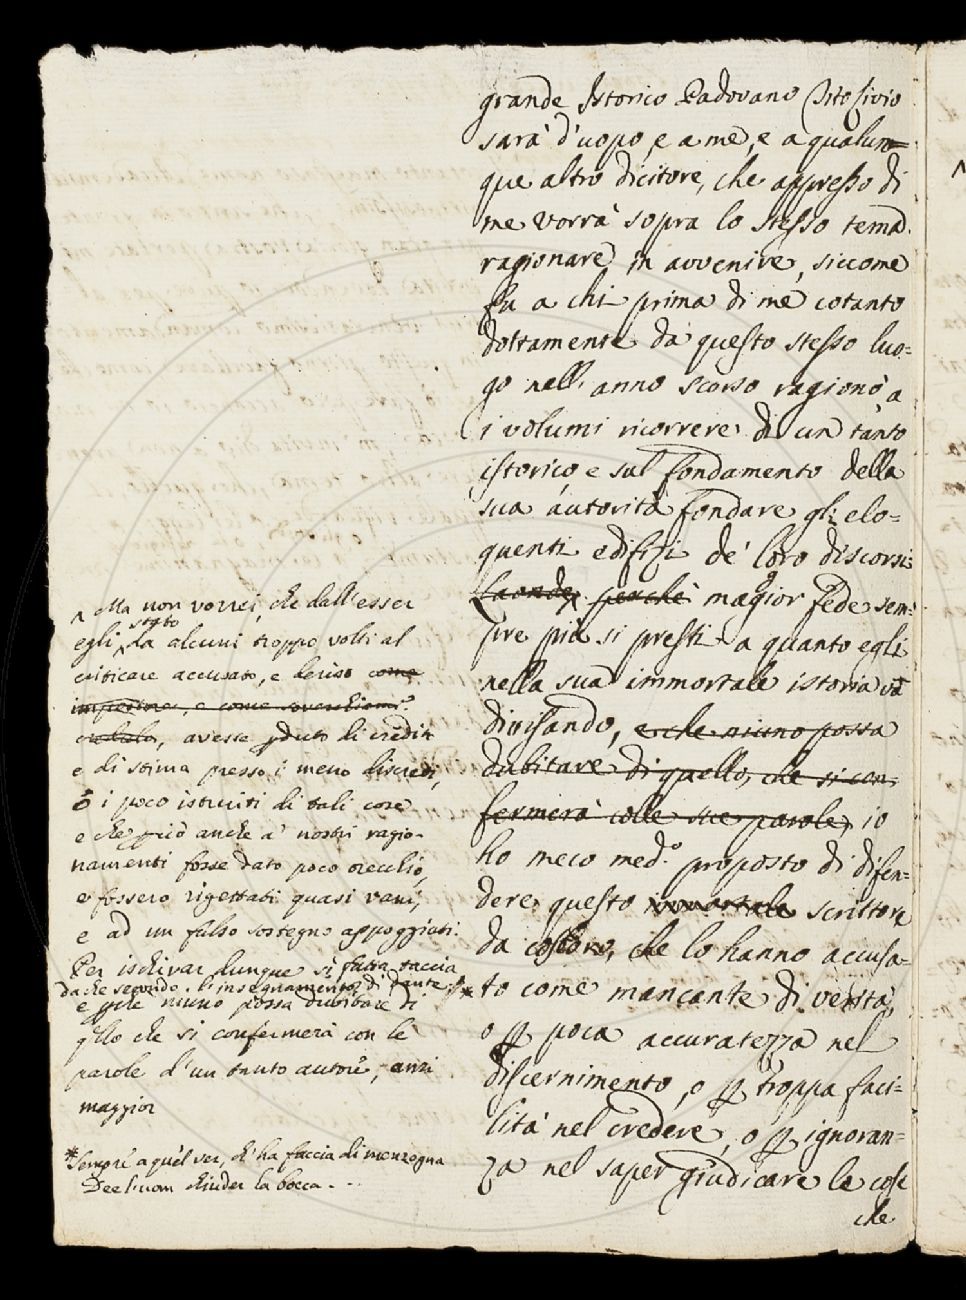 grande Istorico Padovano Tito Livio
sarà d'uopo, e a me, e a qualun=
que altro dicitore, che appresso di
me vorrà sopra lo stesso tema
ragionare in avvenire, siccome
fu a chi prima di me cotanto
dottamente da questo stesso luo=
go nell' anno scorso ragionò a
i volumi ricorrere di un tanto
istorico, e sul fondamento della
sua autorità fondare gli elo=
quenti edifizi de' loro discorsi:
Laonde perchè maggior fede sem=
pre più si presti a quanto egli
nella sua immortale istoria và
divisando, e che niuno possa
dubitare di quello, che si con=
fermerà colle sue parole, io
ho meco med.º proposto di difen=
dere questo immortale scrittore
da coloro, che lo hanno accusa=
to come mancante di verità,
o p poca accuratezza nel
discernimento, o p troppa faci=
lità nel credere, o p ignoran=
za nel saper giudicare le cose
che
^ Ma non vorrei, che dall'esser
stato
egli ^ da alcuni troppo volti al
criticare accusato, e deriso come
impostore, e come
credulo, avesse pduto di credito
e di stima presso i meno discreti,
o i poco istruiti di tali cose
e che pciò anche a' nostri ragio=
namenti fosse dato poco orecchio,
e fossero rigettati quasi vani,
e ad un falso sostegno appoggiati.
Per ischivar dunque sì fatta taccia
da che secondo l'insegnamento di Dante *
e pchè niuno possa dubitare di
qllo che si confermerà con le
parole d'un tanto autore, anzi
maggior
* Sempre a quel ver, ch'ha faccia di menzogna
Dee l'uom chiuder la bocca. - -